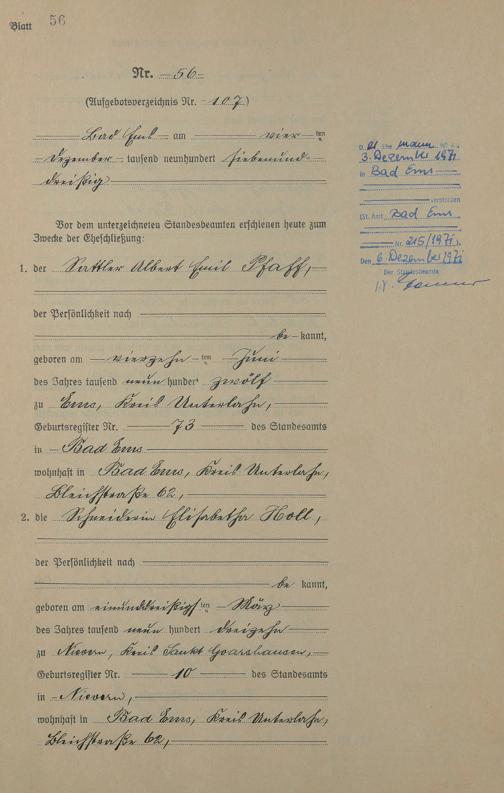 Blatt 56
Nr. 56
(Aufgebotsverzeichnis Nr. 107)
Bad Ems am vier ten
Dezember tausend neunhundert siebenund-
dreißig
Vor dem unterzeichneten Standesbeamten erschienen heute zum
Zwecke der Eheschließung:
1. der Sattler Albert Emil Pfaff,
der Persönlichkeit nach
be kannt,
geboren am vierzehn ten Juni
des Jahres tausend neun hundert zwölf
zu Ems, Kreis Unterlahn,
Geburtsregister Nr. 73 des Standesamts
in Bad Ems
wohnhaft in Bad Ems, Kreis Unterlahn,
Bleichstraße 62,
2. die Schneiderin Elisabetha Holl,
der Persönlichkeit nach
be kannt,
geboren am einunddreißigs ten März
des Jahres tausend neun hundert dreizehn
zu Nievern, Kreis Sankt Goarshausen,
Geburtsregister Nr. 10 des Standesamts
in Nievern,
wohnhaft in Bad Ems, Kreis Unterlahn,
Bleichstraße 62,
Ehemann ist am
3. Dezember 1971
in Bad Ems
verstorben
(St. Amt Bad Ems
Nr. 215/1971).
Den 6. Dezember 1971
Der Standesbeamte